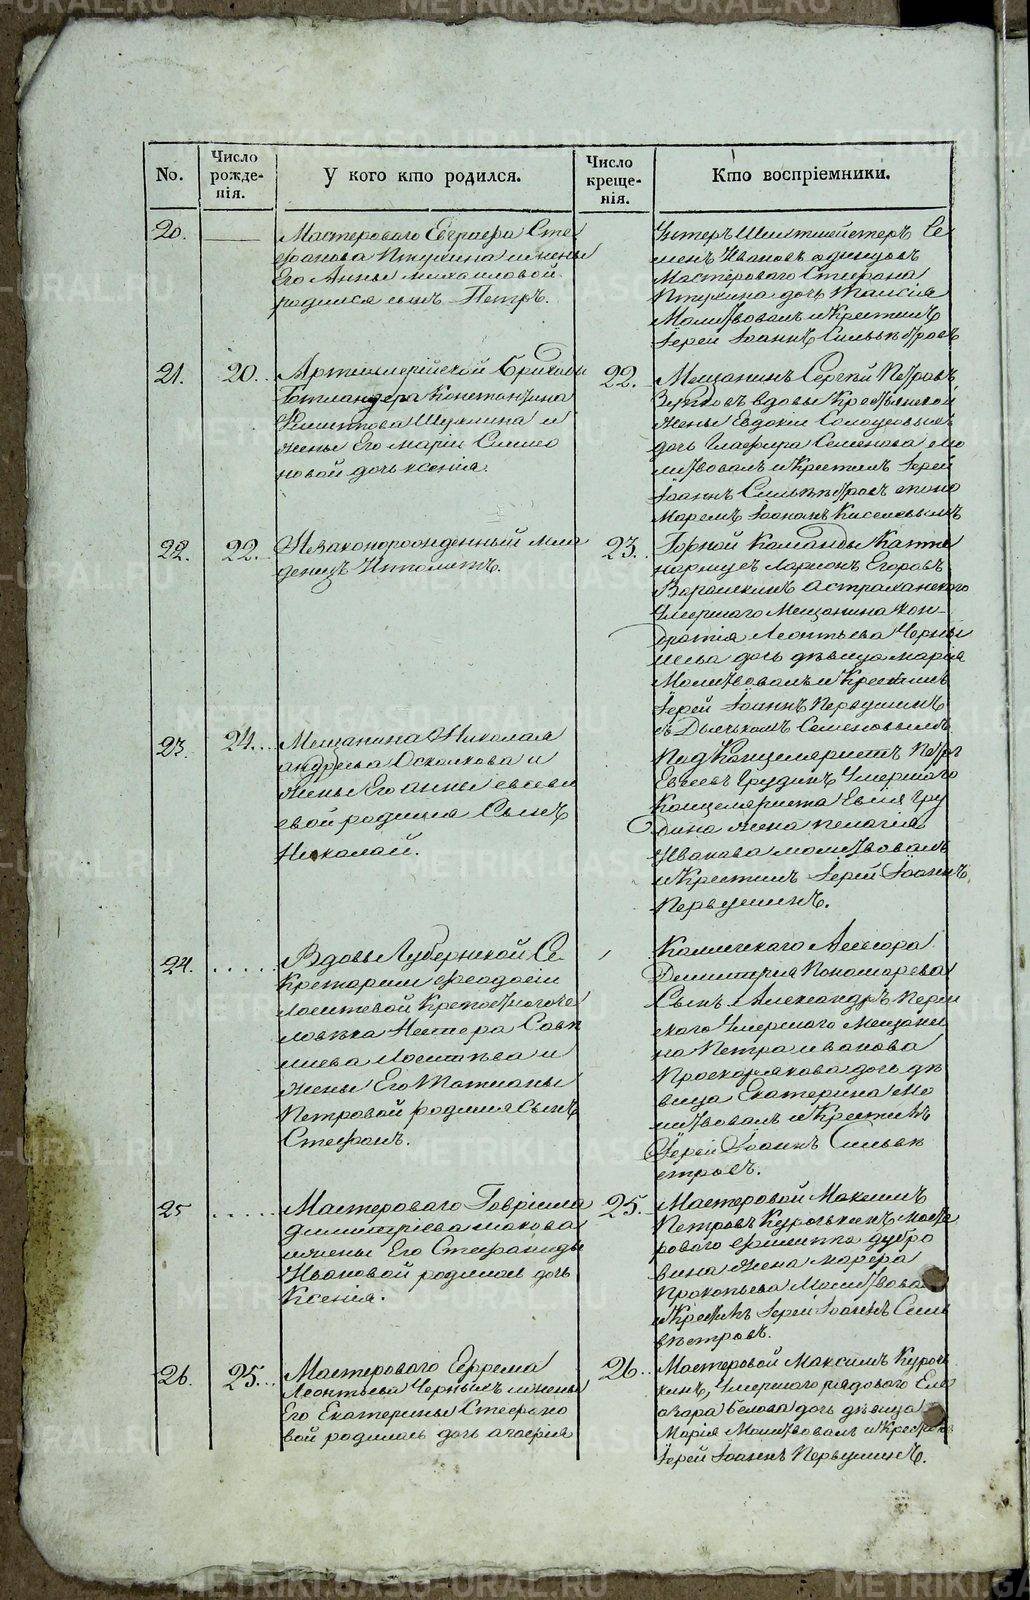 No.
Число рожде- нія.
У кого кто родился.
Число креще- нія.
Кто воспріемники.
20.
Мастероваго Евграфа Сте
фанова Птухина и жены
Его Анны Михаиловой
родился сынъ Петръ.
Унтеръ Шихтмейстеръ Се
менъ Ивановъ
Мастероваго Стефана
Птухина дочь Таисія
Молитвовалъ и Крестилъ
Іерей Іоаннъ Сильвестровъ
21.
20.
Артиллерійской Бригады
Константина
Филиппова Шукшина и
жены Его Маріи Симео
новой дочь Ксенія.
22.
Мещанинъ Сергей Петровъ
вдовы Крестьянской
жены Евдокіи
дочь Глафира Семенова мо
литвовалъ и Крестилъ Іерей
Іоаннъ Сильвестровъ споно
маремъ Іоанномъ Киселевымъ
22.
22.
Незаконорожденный мла
денецъ Ипполитъ.
23.
Горной Команды Капте
нармусъ Ларионъ Егоровъ
Астраханского
Умершаго Мещанина Кон-
дратія Леонтьева Черны
шева дочь девица Марія
Молитвовалъ и Крестилъ
Іерей Іоаннъ Первушинъ
съ Дьячкомъ Семеновымъ
23.
24.
Мещанина Николая
андреева Осколкова и
жены Его анны евсеви
евой родился Сынъ
Николай.
Подканцеляристъ Петръ
Евсеевъ Грудинъ Умершаго
Канцеляриста Евсея Гру
дина жена пелагія
Иванова молитвовалъ
и Крестилъ Іерей Іоаннъ
Первушинъ.
24.
Вдовы Губернской Се
кретарши Феодосіи
Локтевой Крепостного че
ловека Нестера Савв
жены Его Татианы
Петровой родился сынъ
Стефанъ.
Коллежскаго Асессора
Димитрія Пономарева
Сынъ Александръ Перм
скаго Умершаго Мещани
на Петра иванова
Проскурякова дочь де
вица Екатерина Мо
литвовалъ и Крестилъ
Іерей Іоаннъ Сильве
стровъ.
25
Мастероваго Гавріила
димитріева
и жены Его Стефаниды
Ивановой родилась дочь
Ксенія.
25.
Мастеровой Максимъ
Петровъ Курочкинъ масте
роваго филиппа дубро
вина жена марфа
Прокопьева Молитвовалъ
и Крестилъ Іерей Іоаннъ Силь
вестровъ.
26.
25.
Мастероваго Ефрема
Леонтьева Черныхъ и жены
Его Екатерины Стефано
вой родилась дочь агафія
26.
Мастеровой Максимъ Куроч
кинъ, Умершаго рядового Еле
азара белова дочь девица
Марія Молитвовалъ и Крестилъ
Іерей Іоаннъ Первушинъ.